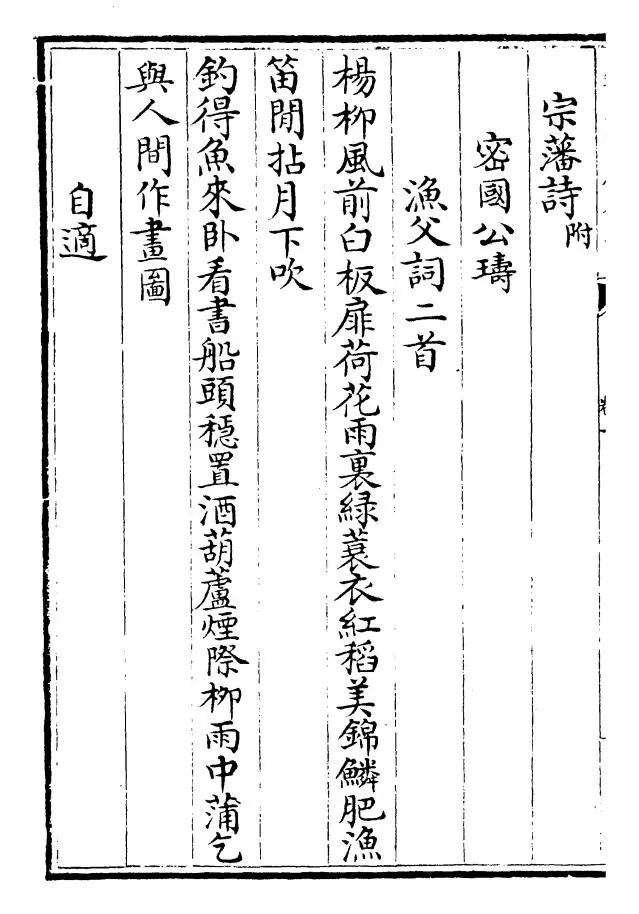 宗藩詩附
密國公璹
漁父詞二首
楊柳風前白板扉荷花雨裏綠蓑衣紅稻美錦鱗肥漁
笛閒拈月下吹
釣得魚來卧看書船頭穩置酒葫蘆煙際柳雨中蒲乞
與人間作畫圖
自適